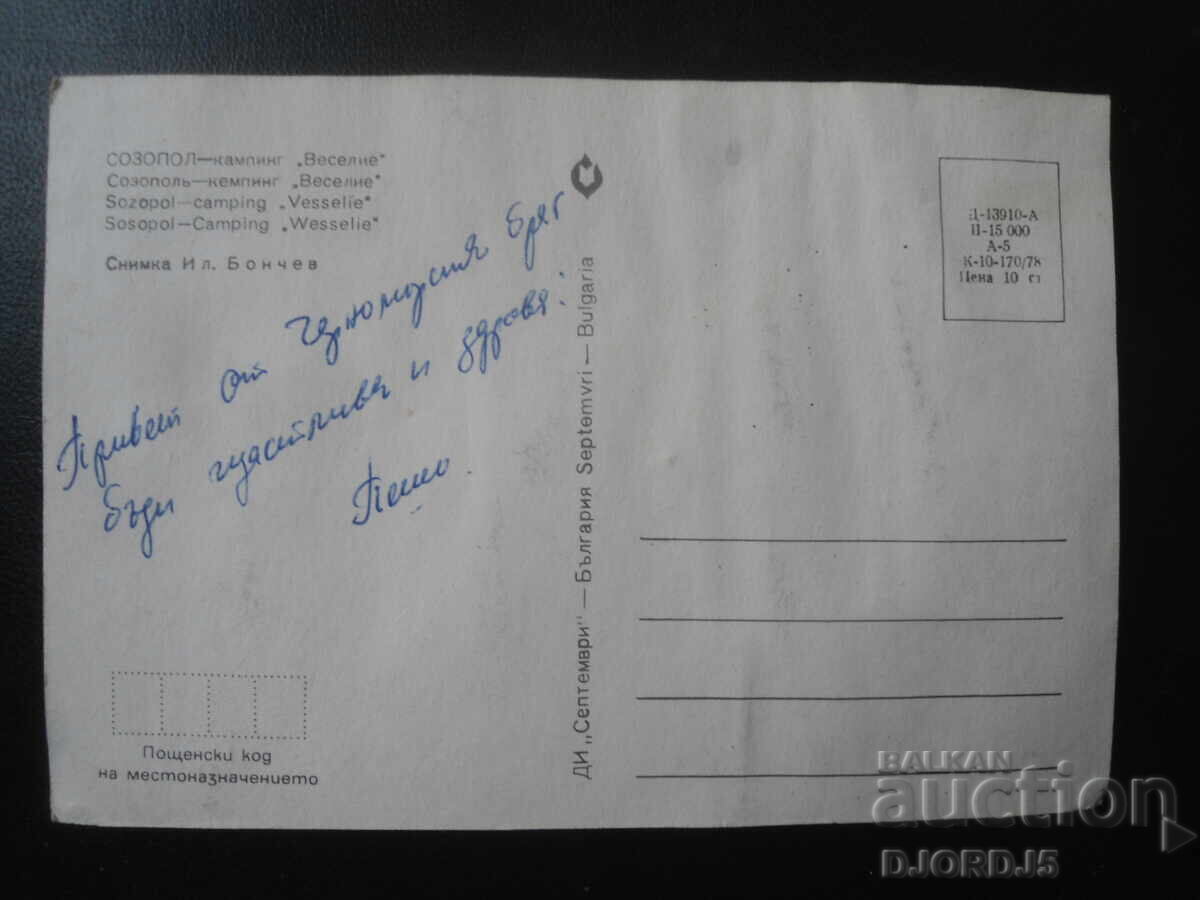 СОЗОПОЛ—кампинг „Веселие"
Созополь—кемпинг „Веселие"
Sozopol—camping „Vesselie"
Sosopol—Camping „Wesselie"
Снимка Ил. Бончев
Привет от Черноморския бряг
бъди щастлива и здрава!
Пешо.
Пощенски код
на местоназначението
ДИ „Септември" — България Septemvri — Bulgaria
Д-13910-А
П-15 000
А-5
К-10-170/78
Цена 10 ст
BALKAN
auction
DJORDJ5